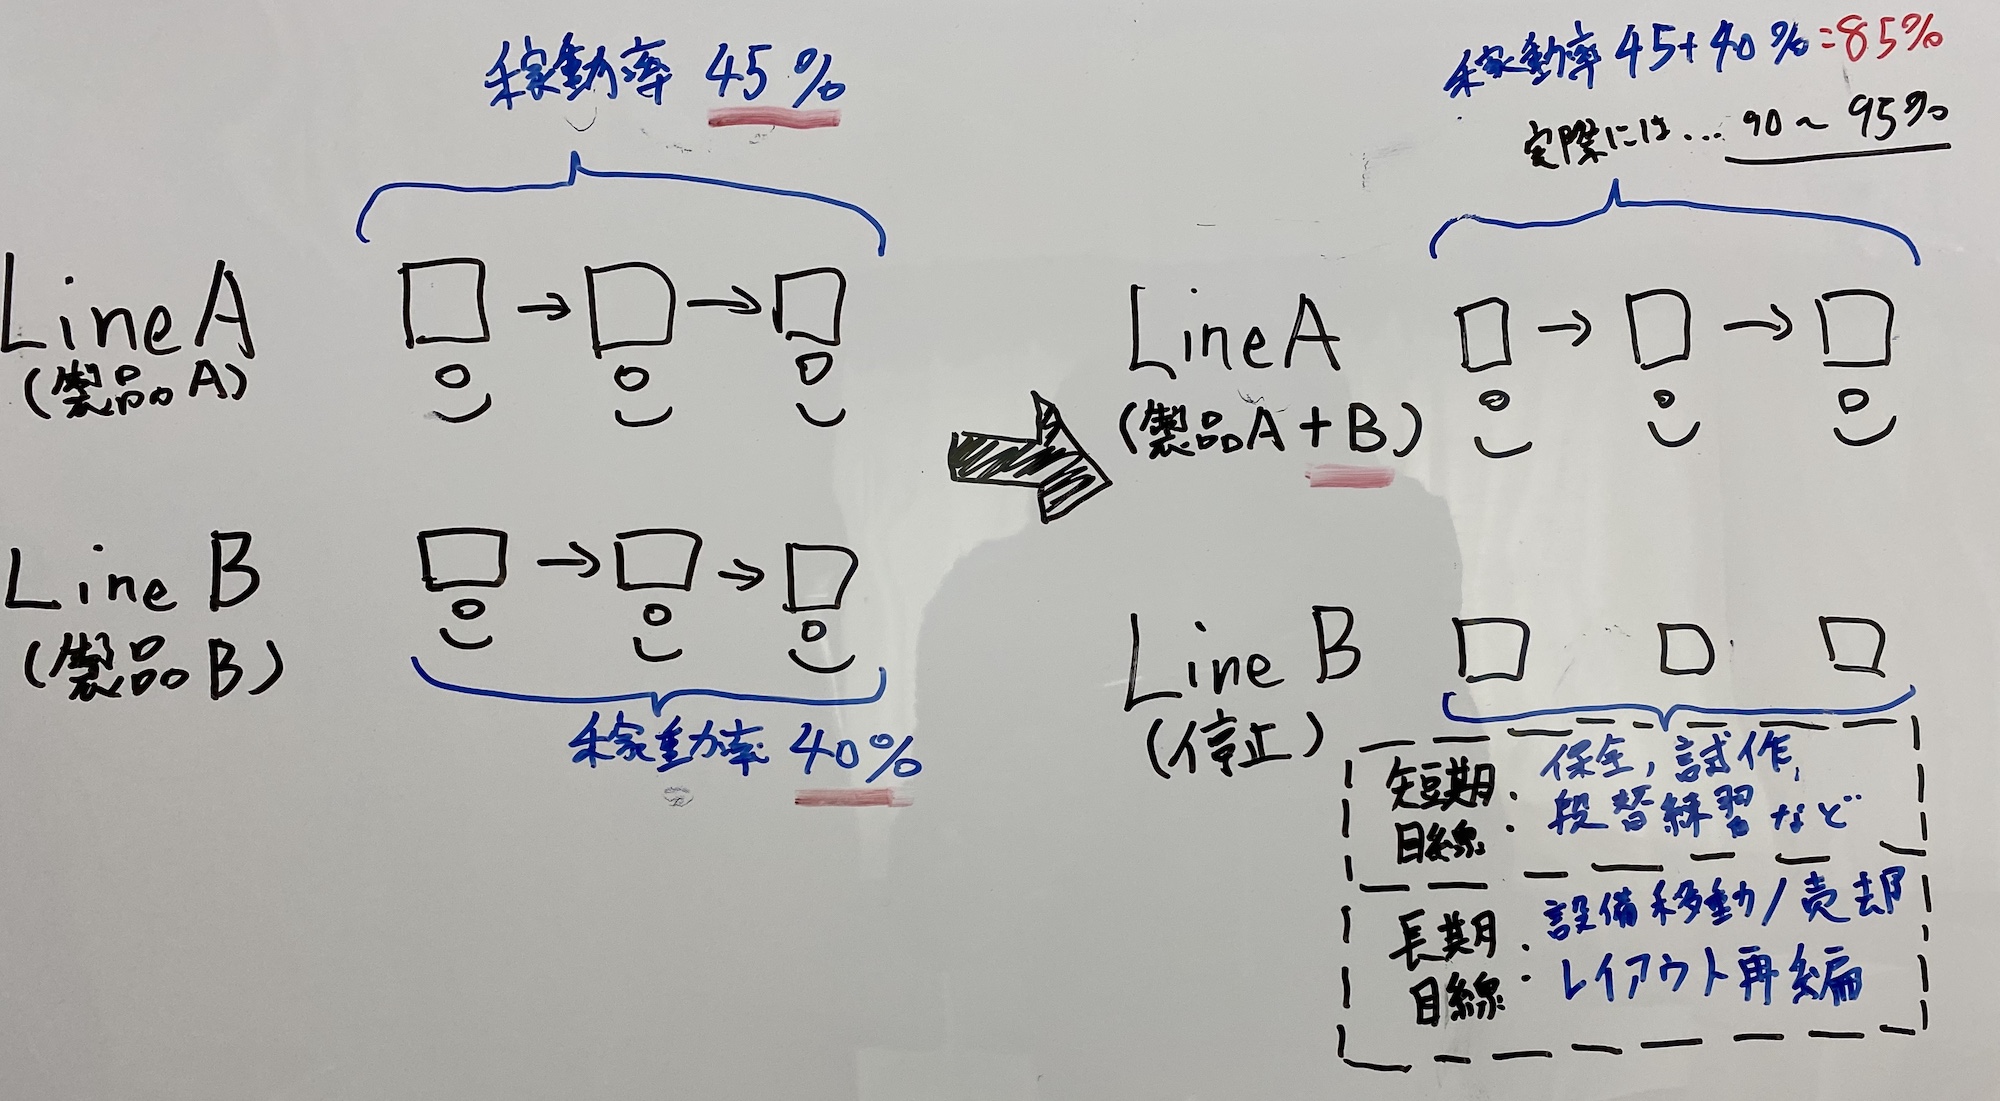 稼動率 45%
Line A
(製品A)
Line B
(製品B)
稼動率 40%
稼動率 45+40%=85%
実際には... 90~95%
Line A
(製品A+B)
Line B
(停止)
短期目線: 保全, 試作,
段替練習など
長期目線: 設備移動/売却
レイアウト再編